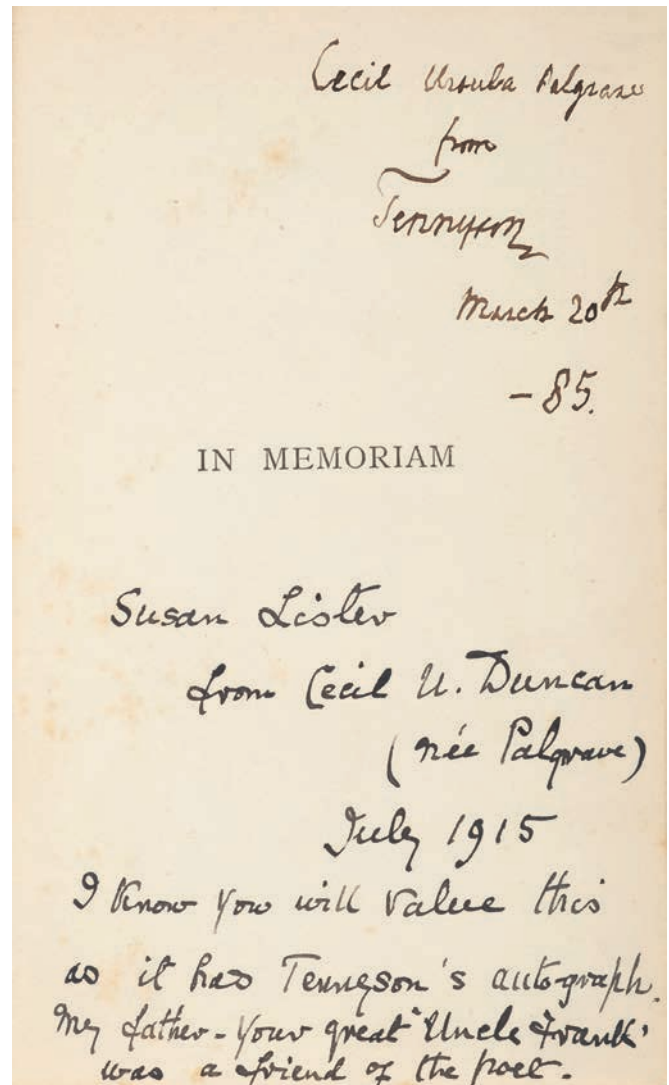 Cecil Ursula Palgrave
from
Tennyson
March 20th
- 85.
IN MEMORIAM
Susan Lister
from Cecil U. Duncan
(née Palgrave)
July 1915
I know you will value this
as it has Tennyson's autograph.
My father - your great 'Uncle Frank'
was a friend of the poet.